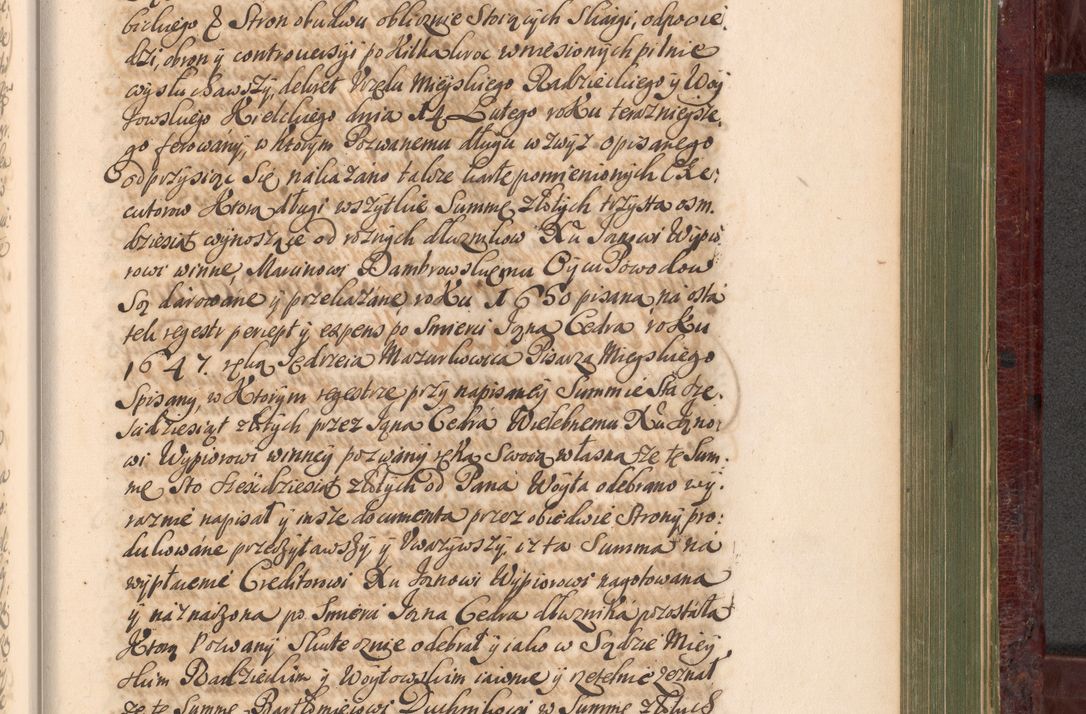 bickiego z Stron obudwu oblicznie stoiących Skargi, odpowie
dzi, obrony controuersyi po kilka kroc wniesionych pilnie
wysłuchawszy, dekret Vrzędu Mieyskiego Radzieckiego y Woy
towskiego Kielckiego dnia 14 Lutego roku teraznieysze
go ferowany, w ktorym Pozwanemu długu wzwyż opisanego
odprzysiąc się nakazano takze kartę pomienionych Exe:
cutorow ktorą długi wszytkie Summę złotych trzysta osm.
dziesiąt wynoszące od roznych dłuznikow Xu Janowi Wypio
rowi winne, Marcinowi Dambrowskiemu Oycu Powodow
są darowane y przekazane, roku 1650 pisana na osta
tek regestr percept y expens po Smierci Jana Cedra roku
1647. ręką Jędrzeia Mazurkowica Pisarza Mieyskiego
Spisany, w ktorym regestrze przy napisaney Summie Sta sze.
ścidziesiąt złotych przez Jana Cedra Wielebnemu Xu Jano:
wi Wypiorowi winney pozwany ręką Swoią własną sze tę Sum:
mę Sto sześcidziesiąt złotych od Pana Woyta odebrano wy:
raznie napisał y insze documenta przez obiedwie Strony pro:
dukowane przeczytawszy y Vwazywszy, iz ta Summa na
wypłacenie Creditorowi Xu Janowi Wypiorowi nagotowana
y naznaczona po Smierci Jana Cedra dłuznika pozostała
Ktorą Pozwany Skutecznie odebrał y iako w Sądzie Miey
skim Radzieckim y Woytowskim iawnie y rzetelnie zeznał
ze tę Summę Bartłomieiowi Duchnikowi w Summie złotych